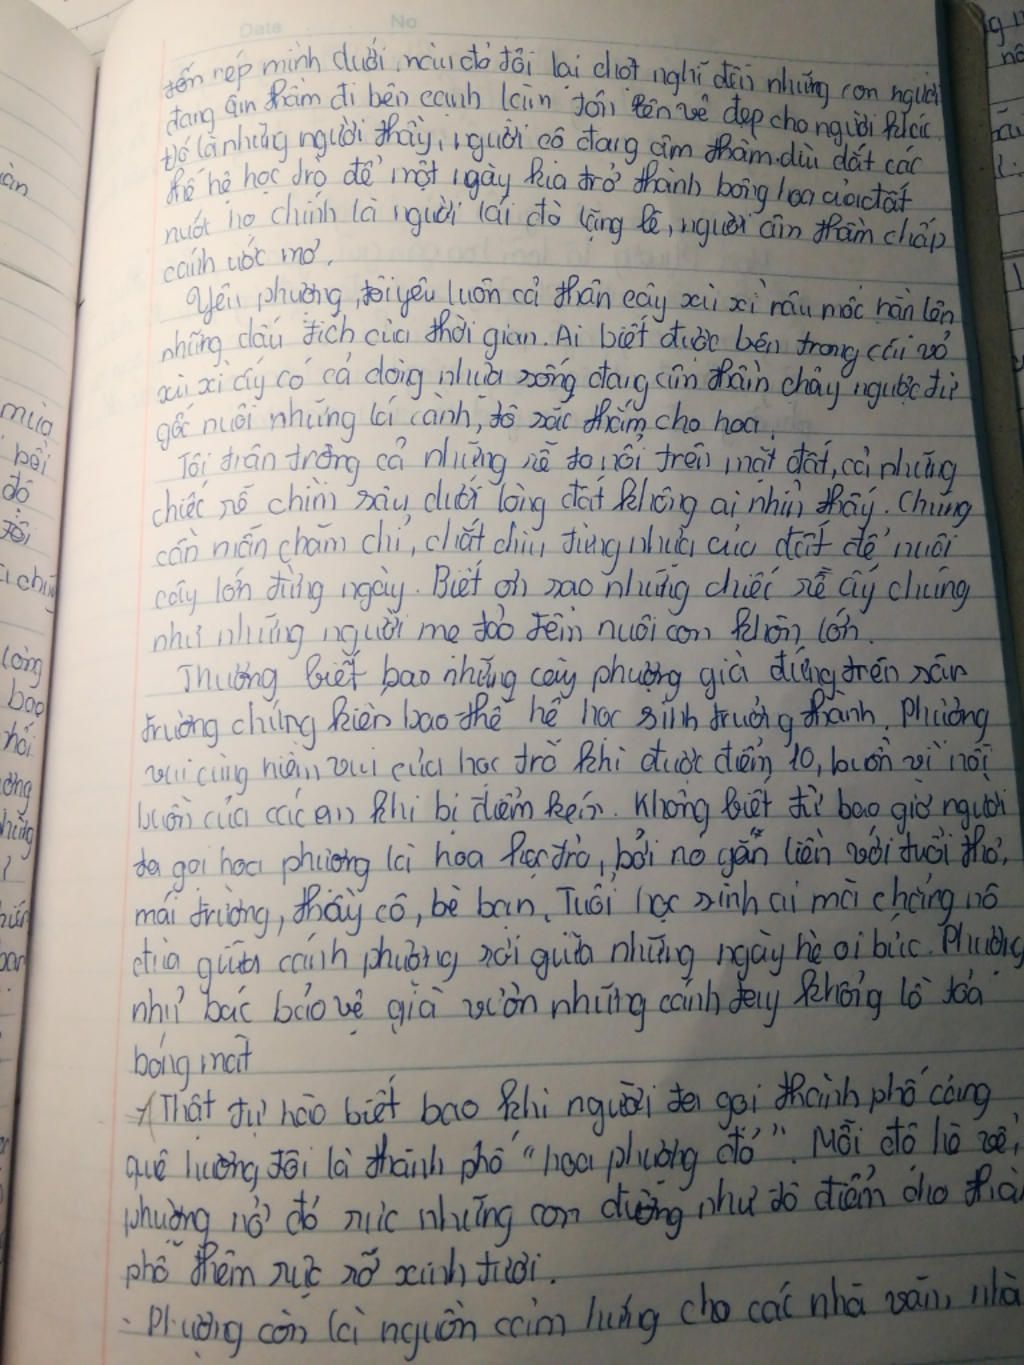 Date No
nép mình dưới màu đỏ tôi lại chợt nghĩ đến những con người
đang âm thầm đi bên cạnh làm tôn lên vẻ đẹp cho người khác
Đó là những người thầy, người cô đang âm thầm dìu dắt các
thế hệ học trò để một ngày kia trở thành bông hoa của đất
nước họ chính là người lái đò lặng lẽ, người âm thầm chắp
cánh ước mơ.
Yêu phượng, tôi yêu luôn cả thân cây xù xì rêu mốc hằn lên
những dấu tích của thời gian. Ai biết được bên trong cái vỏ
xù xì ấy có cả dòng nhựa sống đang âm thầm chảy ngược từ
gốc nuôi những lá cành, tô sắc thắm cho hoa.
Tôi trân trọng cả những rễ to nổi trên mặt đất, cả những
chiếc rễ chìm sâu dưới lòng đất không ai nhìn thấy. Chúng
cần mẫn chăm chỉ, chắt chiu từng nhựa của đất để nuôi
cây lớn từng ngày. Biết ơn sao những chiếc rễ ấy chúng
như những người mẹ tảo tần nuôi con khôn lớn.
Thương biết bao những cây phượng già đứng trên sân
trường chứng kiến bao thế hệ học sinh trưởng thành. Phượng
vui cùng niềm vui của học trò khi được điểm 10, buồn vì nỗi
buồn của các em khi bị điểm kém. Không biết từ bao giờ người
ta gọi hoa phượng là hoa học trò, bởi nó gắn liền với tuổi thơ,
mái trường, thầy cô, bè bạn. Tuổi học sinh ai mà chẳng nô
đùa giữa cánh phượng rơi giữa những ngày hè oi bức. Phượng
như bác bảo vệ già vươn những cánh tay khổng lồ tỏa
bóng mát
Thật tự hào biết bao khi người ta gọi thành phố cảng
quê hương tôi là thành phố "hoa phượng đỏ". Mỗi độ hè về,
phượng nở đỏ rực những con đường như tô điểm cho thàn
phố thêm rực rỡ xinh tươi.
- Phượng còn là nguồn cảm hứng cho các nhà văn, nhà
mùa
bởi
đỏ
tôi
lòng
bao